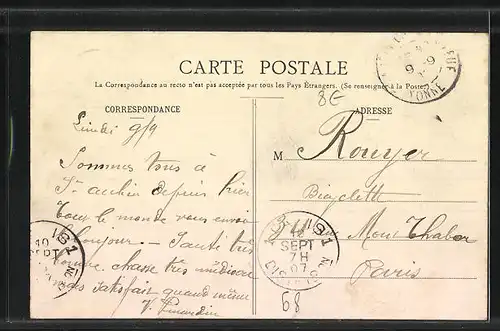 CARTE POSTALE
La Correspondance au recto n'est pas acceptée par tous les Pays Étrangers. (Se renseigner à la Poste.)
8E
CORRESPONDANCE
ADRESSE
Lundi 9/9
Sommes tous à
St aubin depuis hier
Tout le monde vous envoi
Bonjour. — Santé très
bonne. chasse très médiocre
mais satisfait quand même
M Rouyer
Bicyclette
Mont Thabor
Paris
YONNE
10
SEPT
7H
07
68